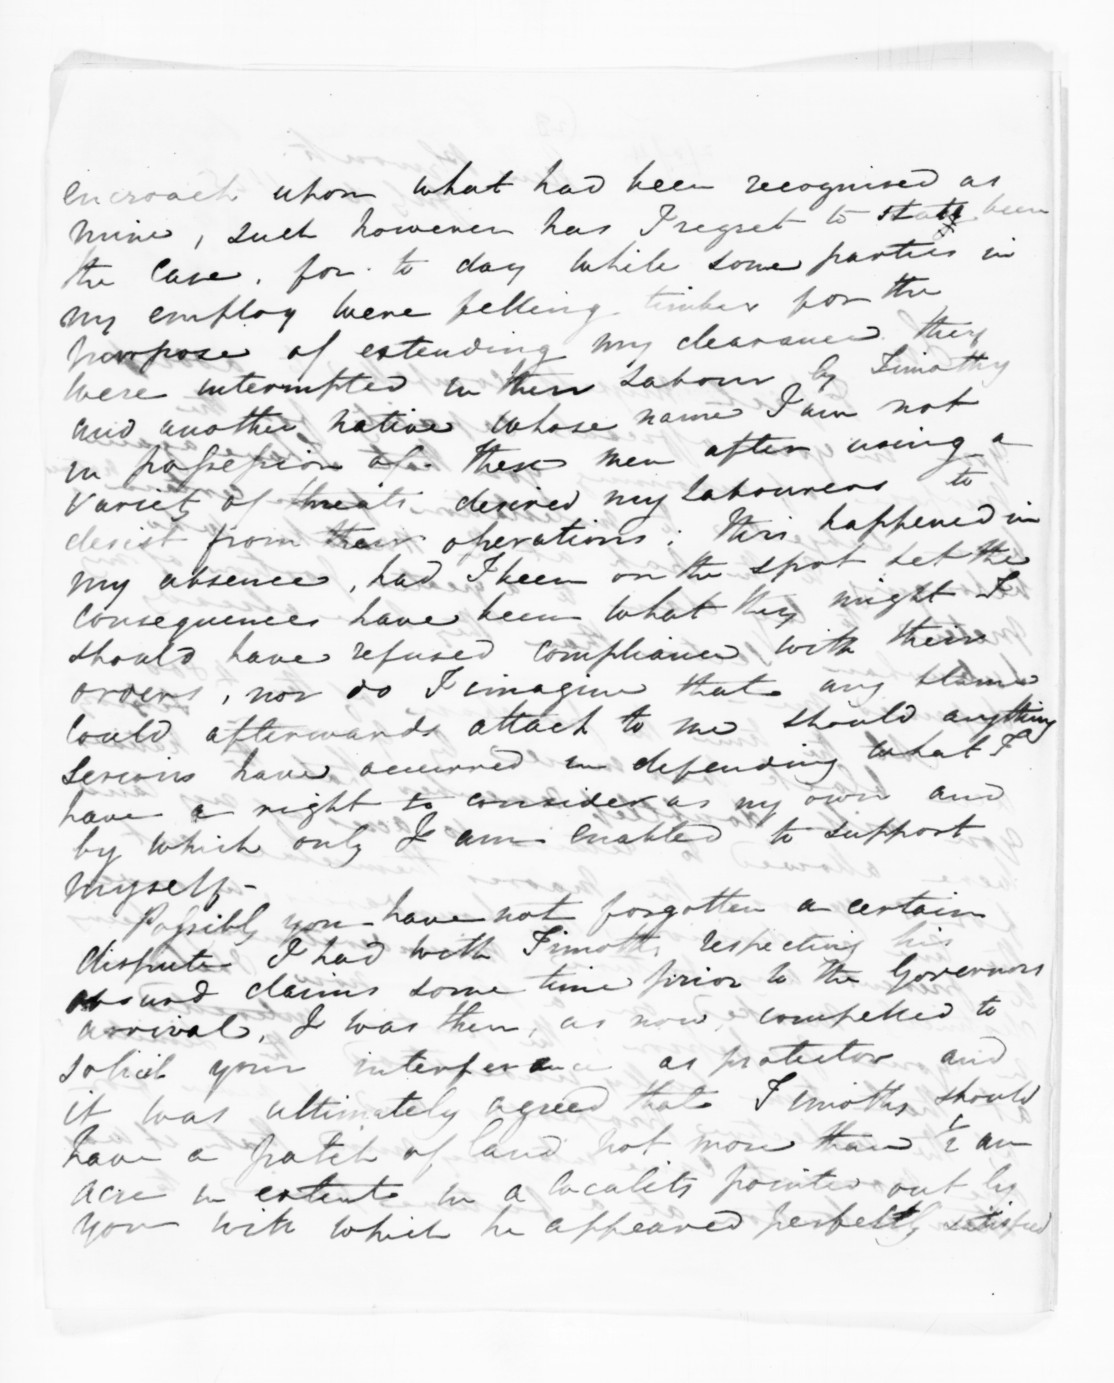 encroach upon what had been recognised as
mine, such however has I regret to state been
the case, for to day while some parties in
my employ were felling timber for the
purpose of extending my clearance they
were interrupted in their labour by Timothy
and another native whose name I am not
in possession of. These men after using a
variety of threats desired my labourers to
desist from their operations; this happened in
my absence, had I been on the spot let the
consequences have been what they might I
should have refused compliance with their
orders, nor do I imagine that any blame
could afterwards attach to me should anything
serious have occurred in defending what I
have a right to consider as my own and
by which only I am enabled to support
myself -
Possibly you have not forgotten a certain
dispute I had with Timothy respecting his
absurd claims some time prior to the Governors
arrival, I was then, as now, compelled to
solicit your interferance as protector and
it was ultimately agreed that Timothy should
have a patch of land not more than 1/2 an
acre in extent in a locality pointed out by
you with which he appeared perfectly satisfied